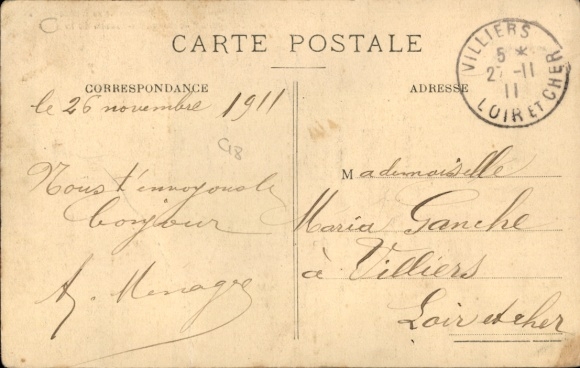 CARTE POSTALE
VILLIERS
5 *
27 -11
11
LOIR ET CHER
CORRESPONDANCE
ADRESSE
le 26 novembre 1911
C18
Nous t'envoyons le
bonjour
A. Menage
Mademoiselle
Maria Ganche
à Villiers
Loir et cher